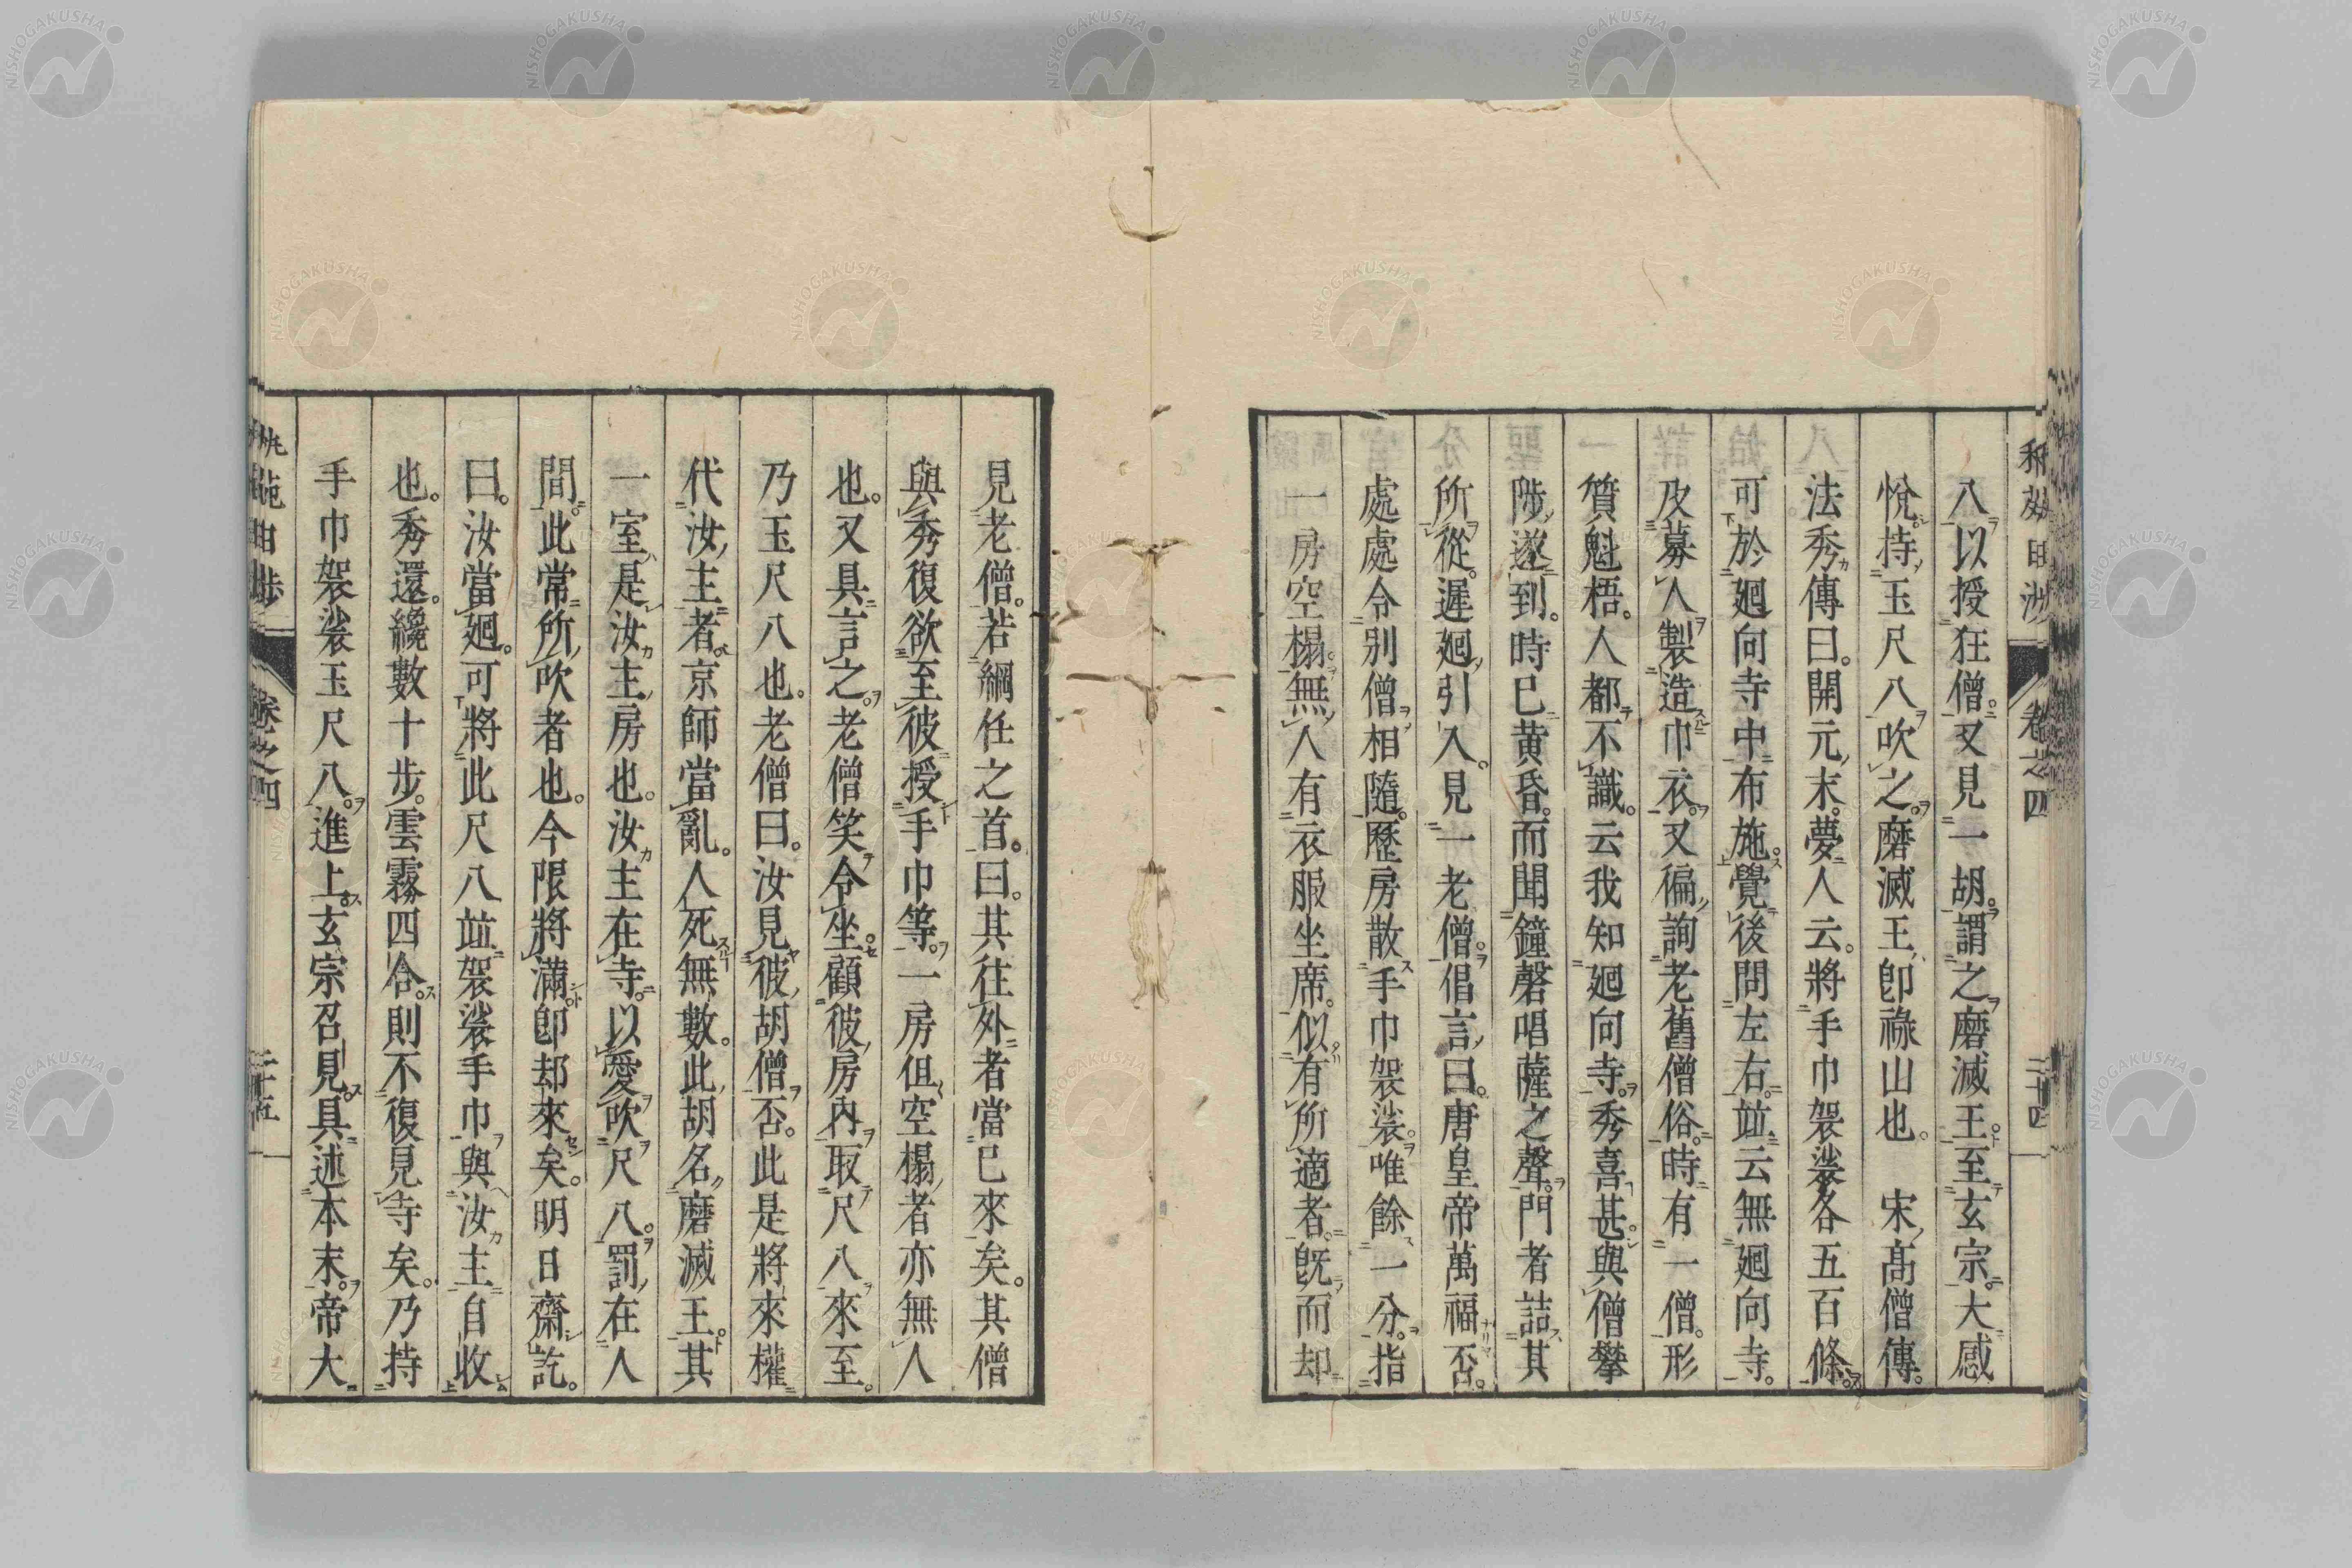 八以授狂僧又見一胡謂之磨滅王至玄宗大感
悅持玉尺八吹之磨滅王卽祿山也 宋高僧傳
法秀傳曰開元末夢人云將手巾袈裟各五百條
可於廻向寺中布施覺後問左右竝云無廻向寺
及募人製造巾衣又徧詢老舊僧俗時有一僧形
質魁梧人都不識云我知廻向寺秀喜甚與僧攀
陟遂到時已黄昏而聞鐘磬唱薩之聲門者詰其
所從遲廻引入見一老僧倡言曰唐皇帝萬福否
處處令别僧相隨歷房散手巾袈裟唯餘一分指
一房空榻無人有衣服坐席似有所適者既而却
見老僧若綱任之首曰其往外者當已來矣其僧
與秀復欲至彼授手巾等一房但空榻者亦無人
也又具言之老僧笑令坐顧彼房內取尺八來至
乃玉尺八也老僧曰汝見彼胡僧否此是將來權
代汝主者京師當亂人死無數此胡名磨滅王其
一室是汝主房也汝主在寺以愛吹尺八罰在人
間此常所吹者也今限將滿卽却來矣明日齋訖
曰汝當廻可將此尺八竝袈裟手巾與汝主自收
也秀還纔數十步雲霧四合則不復見寺矣乃持
手巾袈裟玉尺八進上玄宗召見具述本末帝大
卷之四
二十四
卷之四
二十五
NISHOGAKUSHA